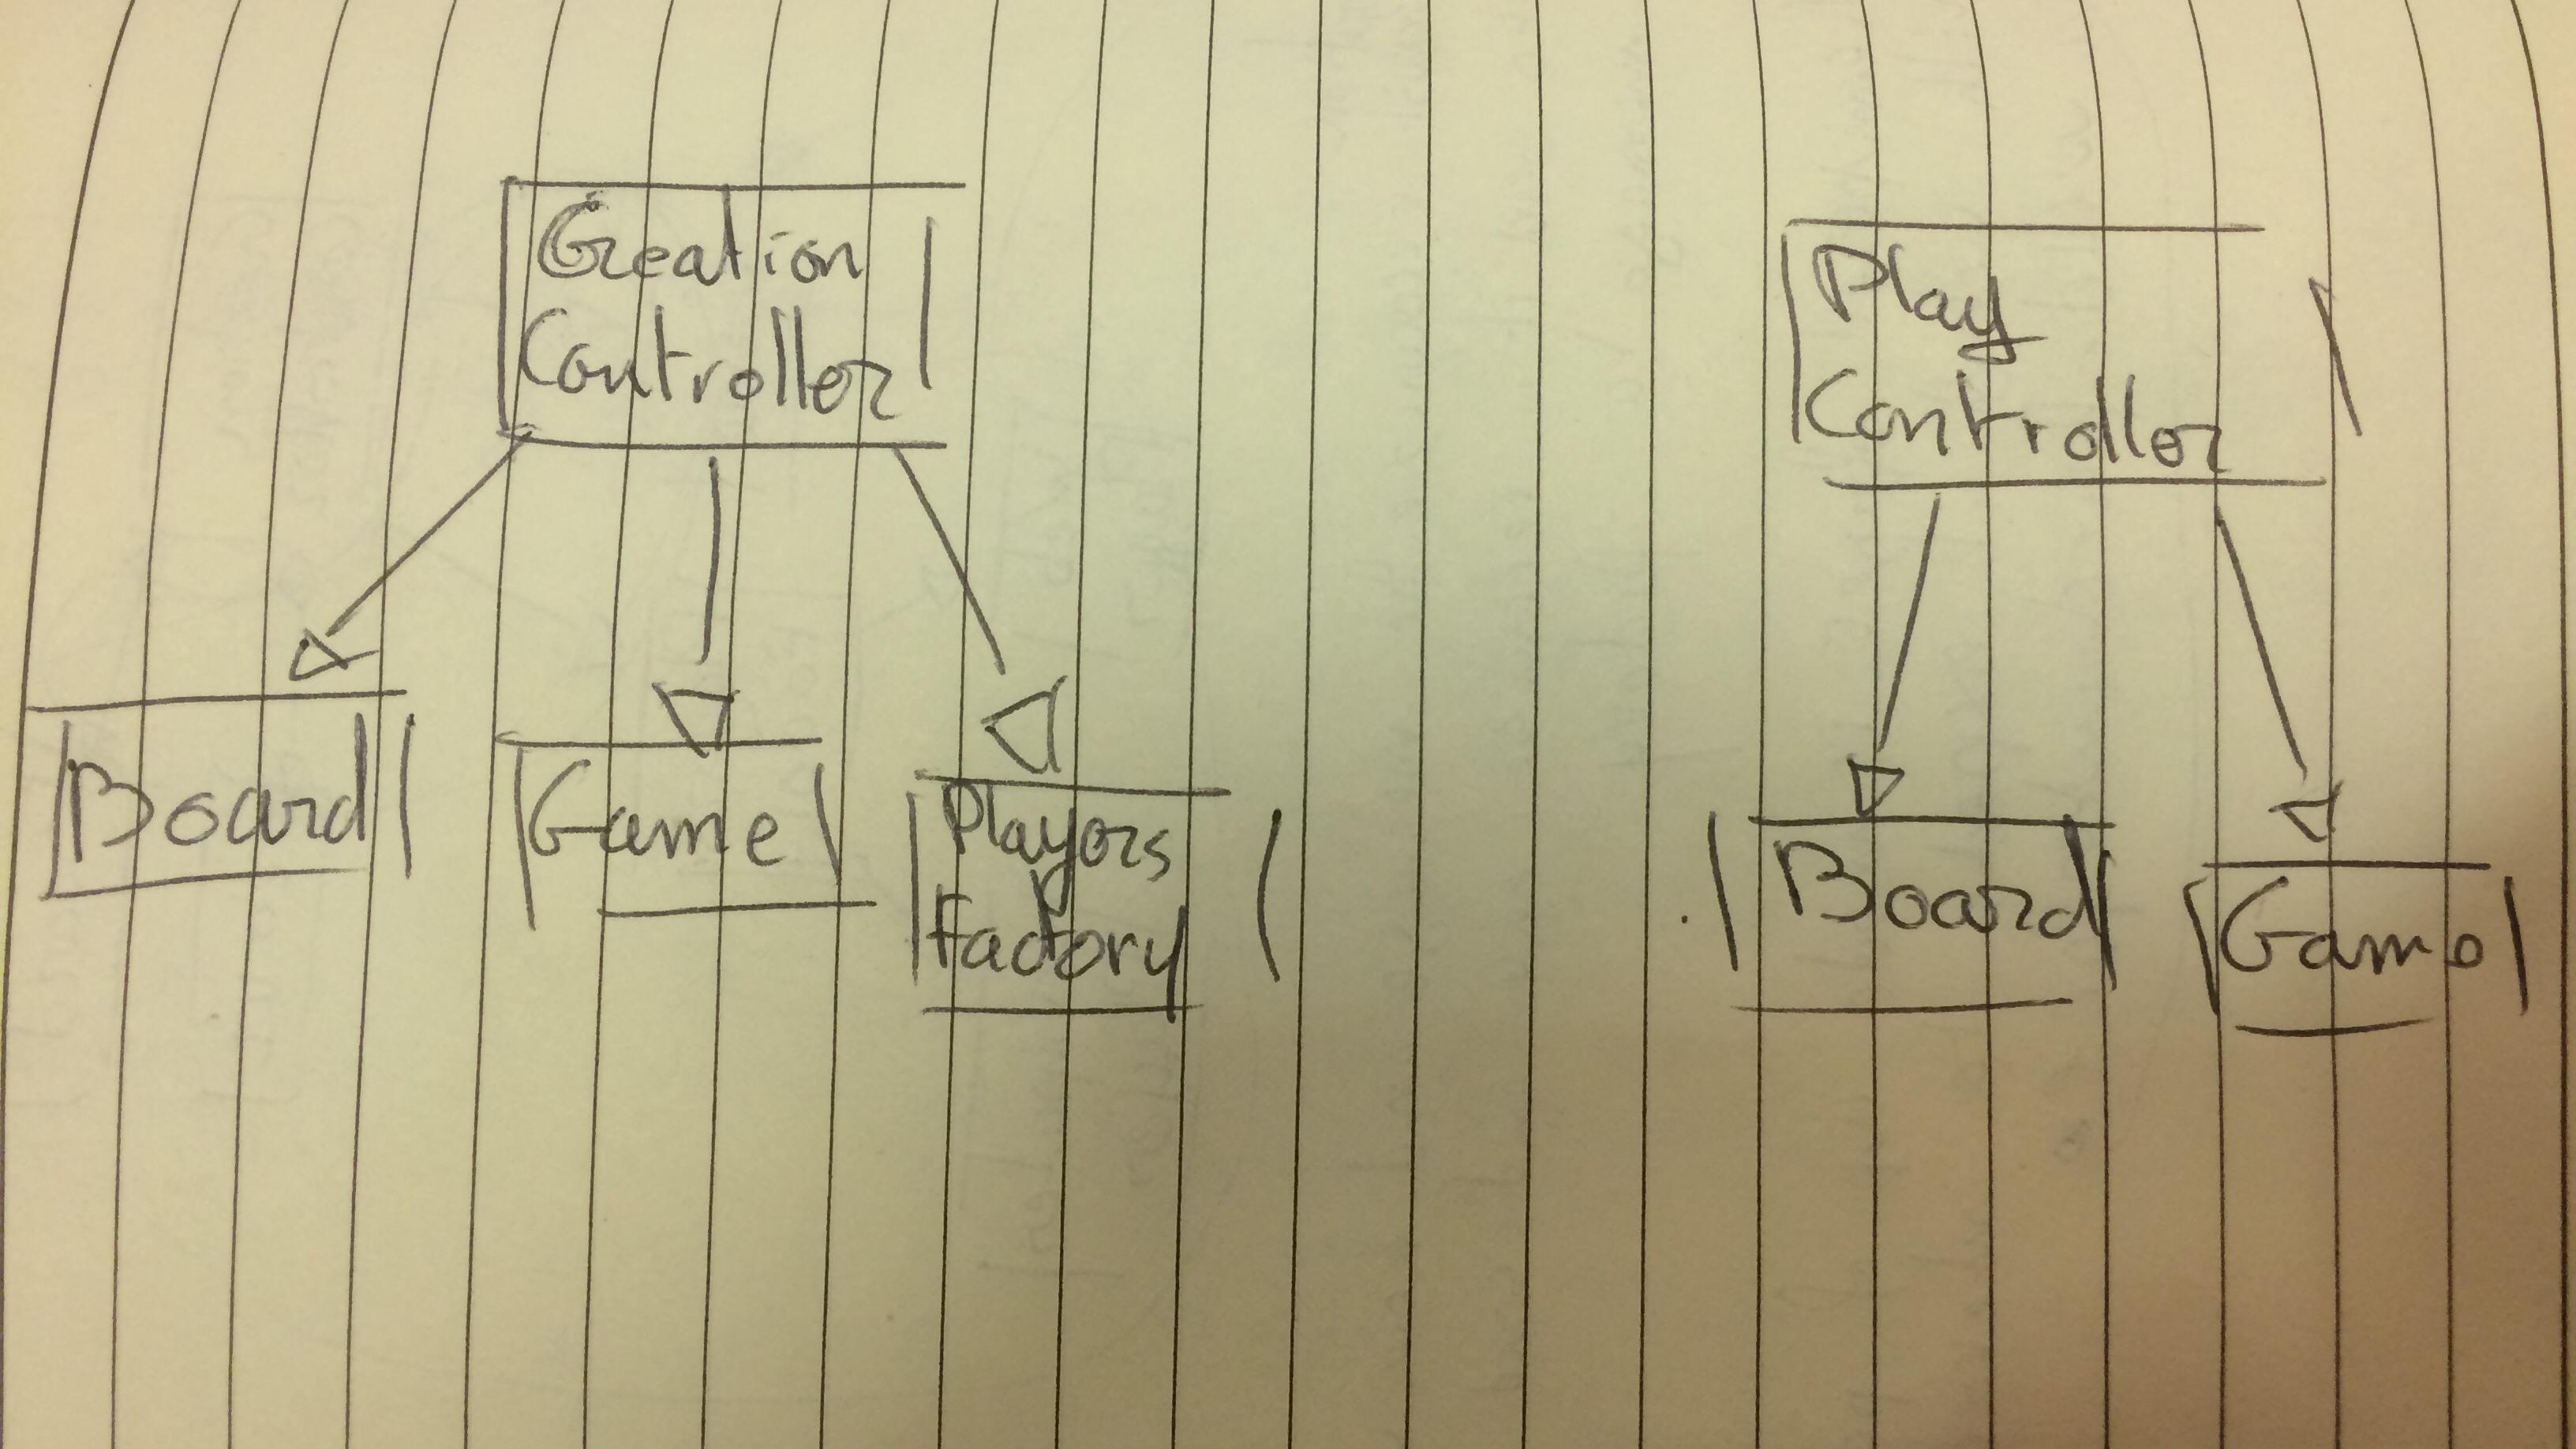 Creation
Controller
Board
Game
Players
Factory
Play
Controller
Board
Game